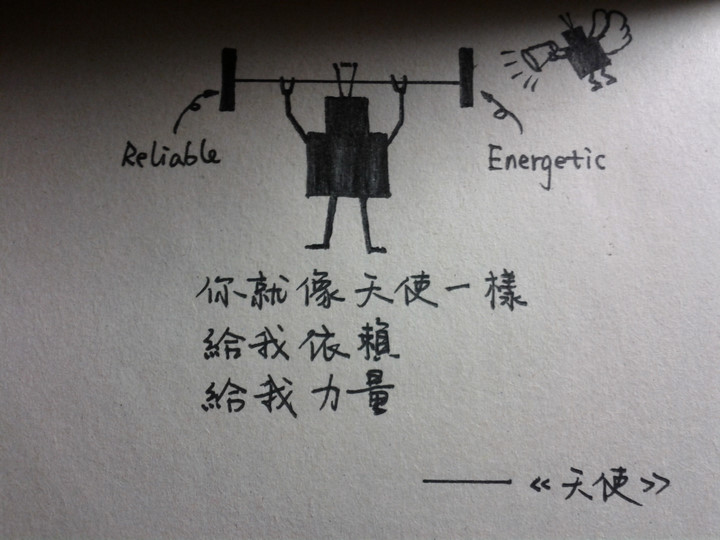 Reliable
Energetic
你就像天使一樣
給我依賴
給我力量
——《天使》